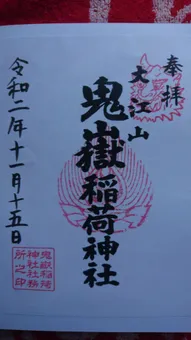 奉拝
大江山
鬼嶽稲荷神社
令和二年十一月十五日
鬼嶽稲荷
神社社務
所之印